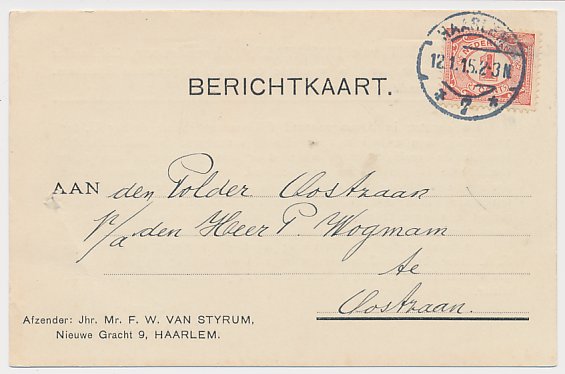 HAARLEM
12.1.15.2-3N
* 7 *
1
BERICHTKAART.
AAN den Polder Oostzaan
p/a den Heer P. Wogmam
te
Oostzaan.
Afzender: Jhr. Mr. F. W. VAN STYRUM,
Nieuwe Gracht 9, HAARLEM.